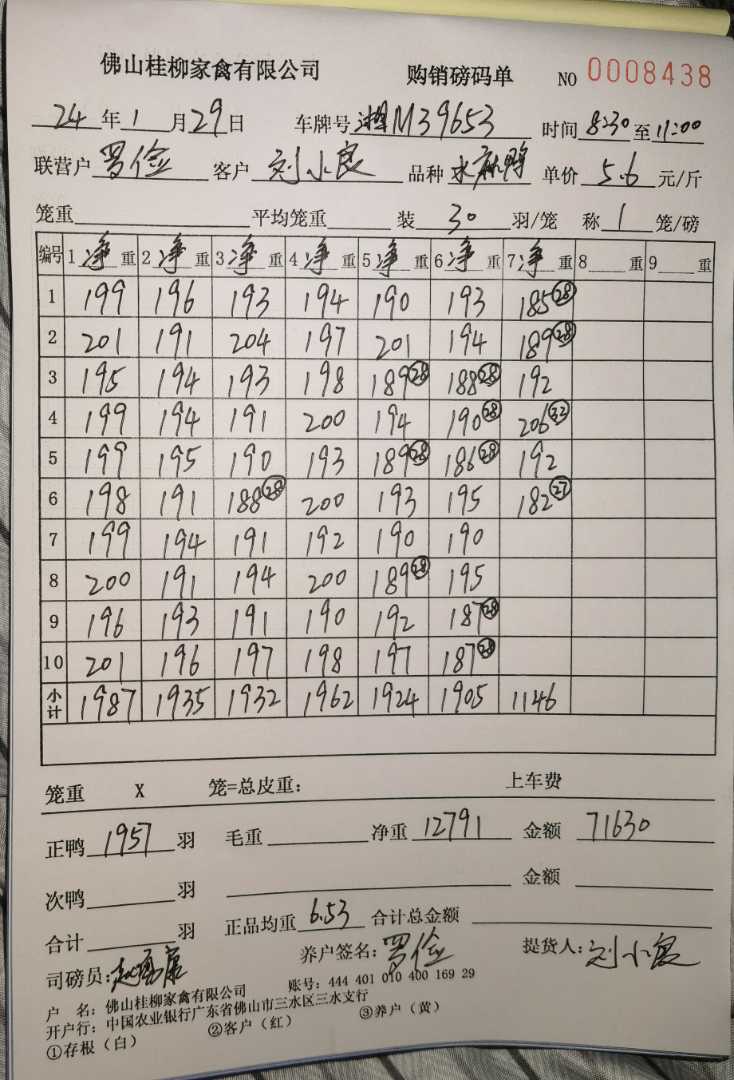 佛山桂柳家禽有限公司 购销磅码单 NO 0008438
24年1月29日 车牌号 湘M39653 时间 8:30 至 11:00
联营户 罗俭 客户 刘小良 品种 水麻鸭 单价 5.6 元/斤
笼重 平均笼重 装 30 羽/笼 称 1 笼/磅
编号 1 净 重 2 净 重 3 净 重 4 净 重 5 净 重 6 净 重 7 净 重 8 重 9 重
1 199 196 193 194 190 193 185(28)
2 201 191 204 197 201 194 189(28)
3 195 194 193 198 189(28) 188(28) 192
4 199 194 191 200 194 190(28) 206(32)
5 199 195 190 193 189(28) 186(28) 192
6 198 191 188(28) 200 193 195 182(27)
7 199 194 191 192 190 190
8 200 191 194 200 189(28) 195
9 196 193 191 190 192 187(28)
10 201 196 197 198 197 187(28)
小计 1987 1935 1932 1962 1924 1905 1146
笼重 X 笼=总皮重： 上车费
正鸭 1957 羽 毛重 净重 12791 金额 71630
次鸭 羽 金额
合计 羽 正品均重 6.53 合计总金额
司磅员： 养户签名：罗俭 提货人：刘小良
户 名：佛山桂柳家禽有限公司 账号：444 401 010 400 169 29
开户行：中国农业银行广东省佛山市三水区三水支行
①存根（白） ②客户（红） ③养户（黄）